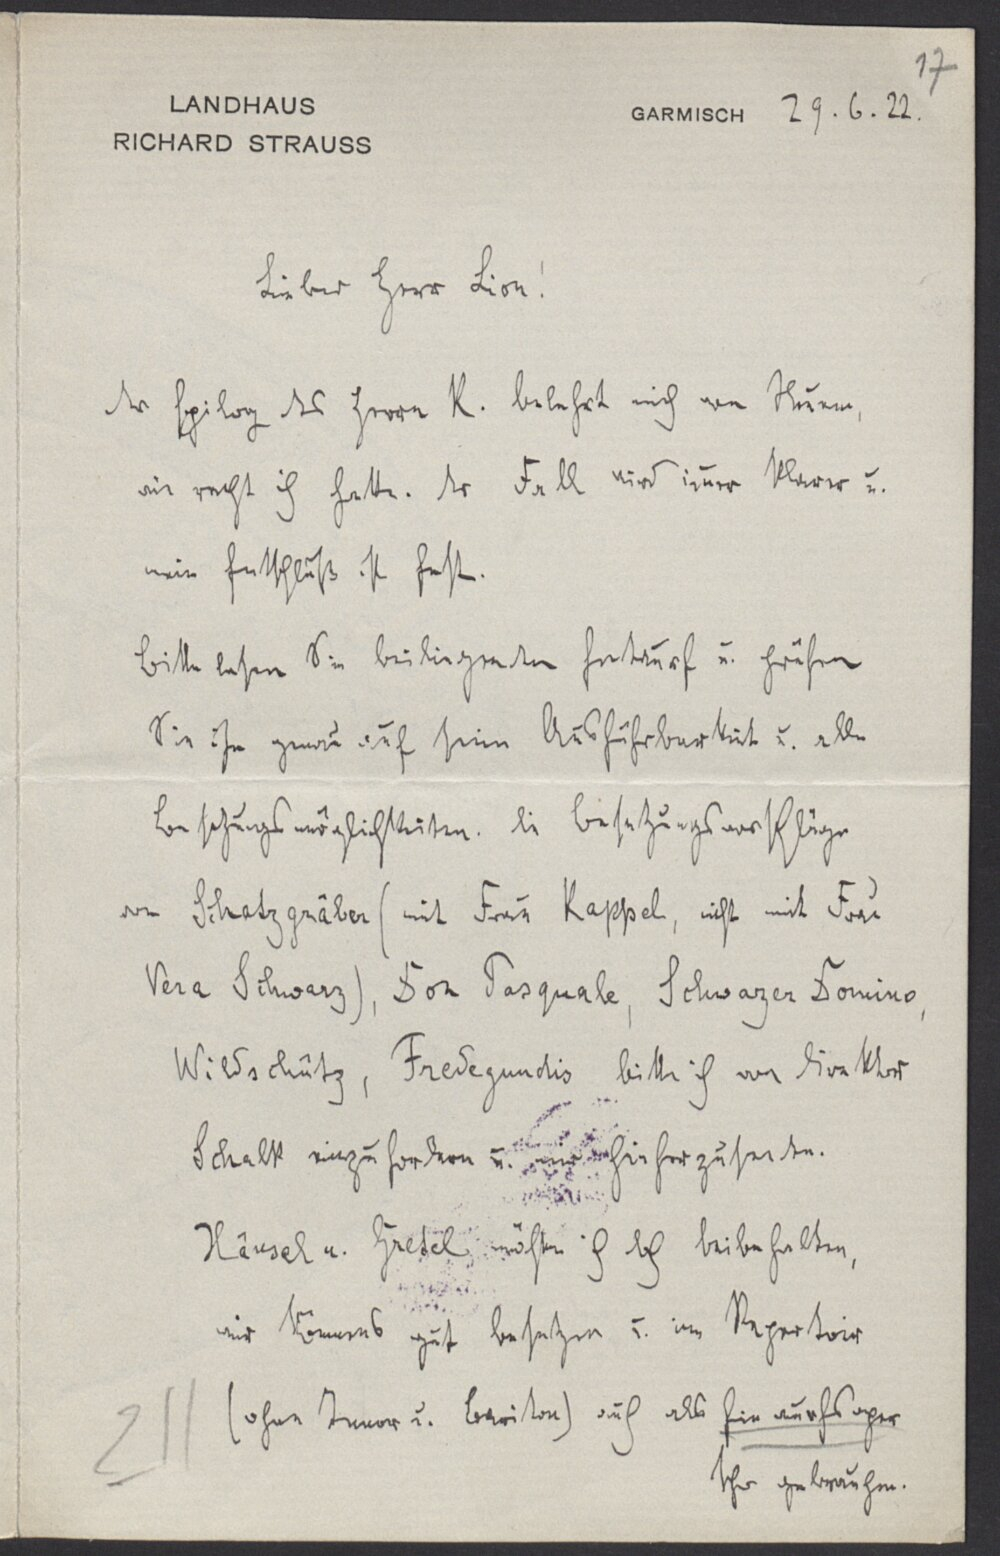 17
LANDHAUS
RICHARD STRAUSS
GARMISCH 29.6.22.
Lieber Herr Lion!
der Epilog des Herrn K. belehrt mich von Neuem,
wie recht ich hatte. der Fall wird immer klarer u.
mein Entschluß ist fest.
Bitte lesen Sie beiliegenden Entwurf u. prüfen
Sie ihn genau auf seine Ausführbarkeit u. alle
Besetzungsmöglichkeiten. die Besetzungsvorschläge
von Schatzgräber (mit Frau Kappel, nicht mit Frau
Vera Schwarz), Don Pasquale, Schwarzer Domino,
Wildschütz, Fredegundis bitte ich von Direktor
Schalk einzufordern u. mir hieherzusenden.
Hänsel u. Gretel möchte ich doch beibehalten,
wir könnens gut besetzen u. im Repertoir
(ohne Tenor u. Bariton) auch als Einwurfsoper
sehr gebrauchen.
211